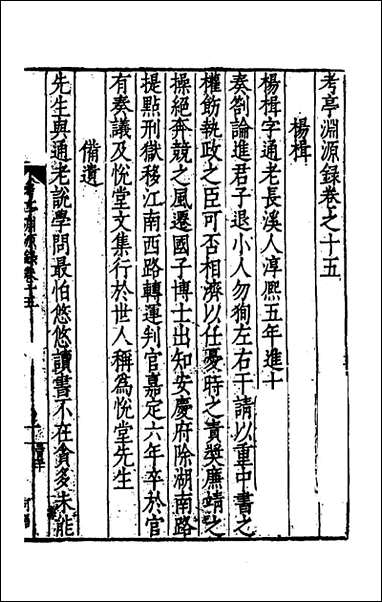 考亭淵源録卷之十五
楊楫
楊楫字通老長溪人淳熈五年進士
奏劄論進君子退小人勿狥左右干請以重中書之
權飭執政之臣可否相濟以任憂時之責奬廉靖之
操絕奔競之風遷國子博士出知安慶府除湖南路
提點刑獄移江南西路轉運判官嘉定六年卒於官
有奏議及悅堂文集行於世人稱為悅堂先生
備遺
先生與通老說學問最怕悠悠讀書不在貪多未能